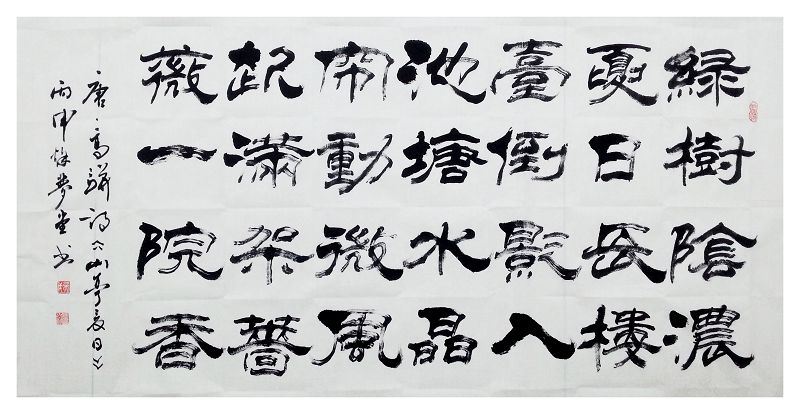 綠樹陰濃
夏日長樓
臺倒影入
池塘水晶
帘動微風
起滿架薔
薇一院香
唐·高駢詩《山亭夏日》
丙申 夢堂書